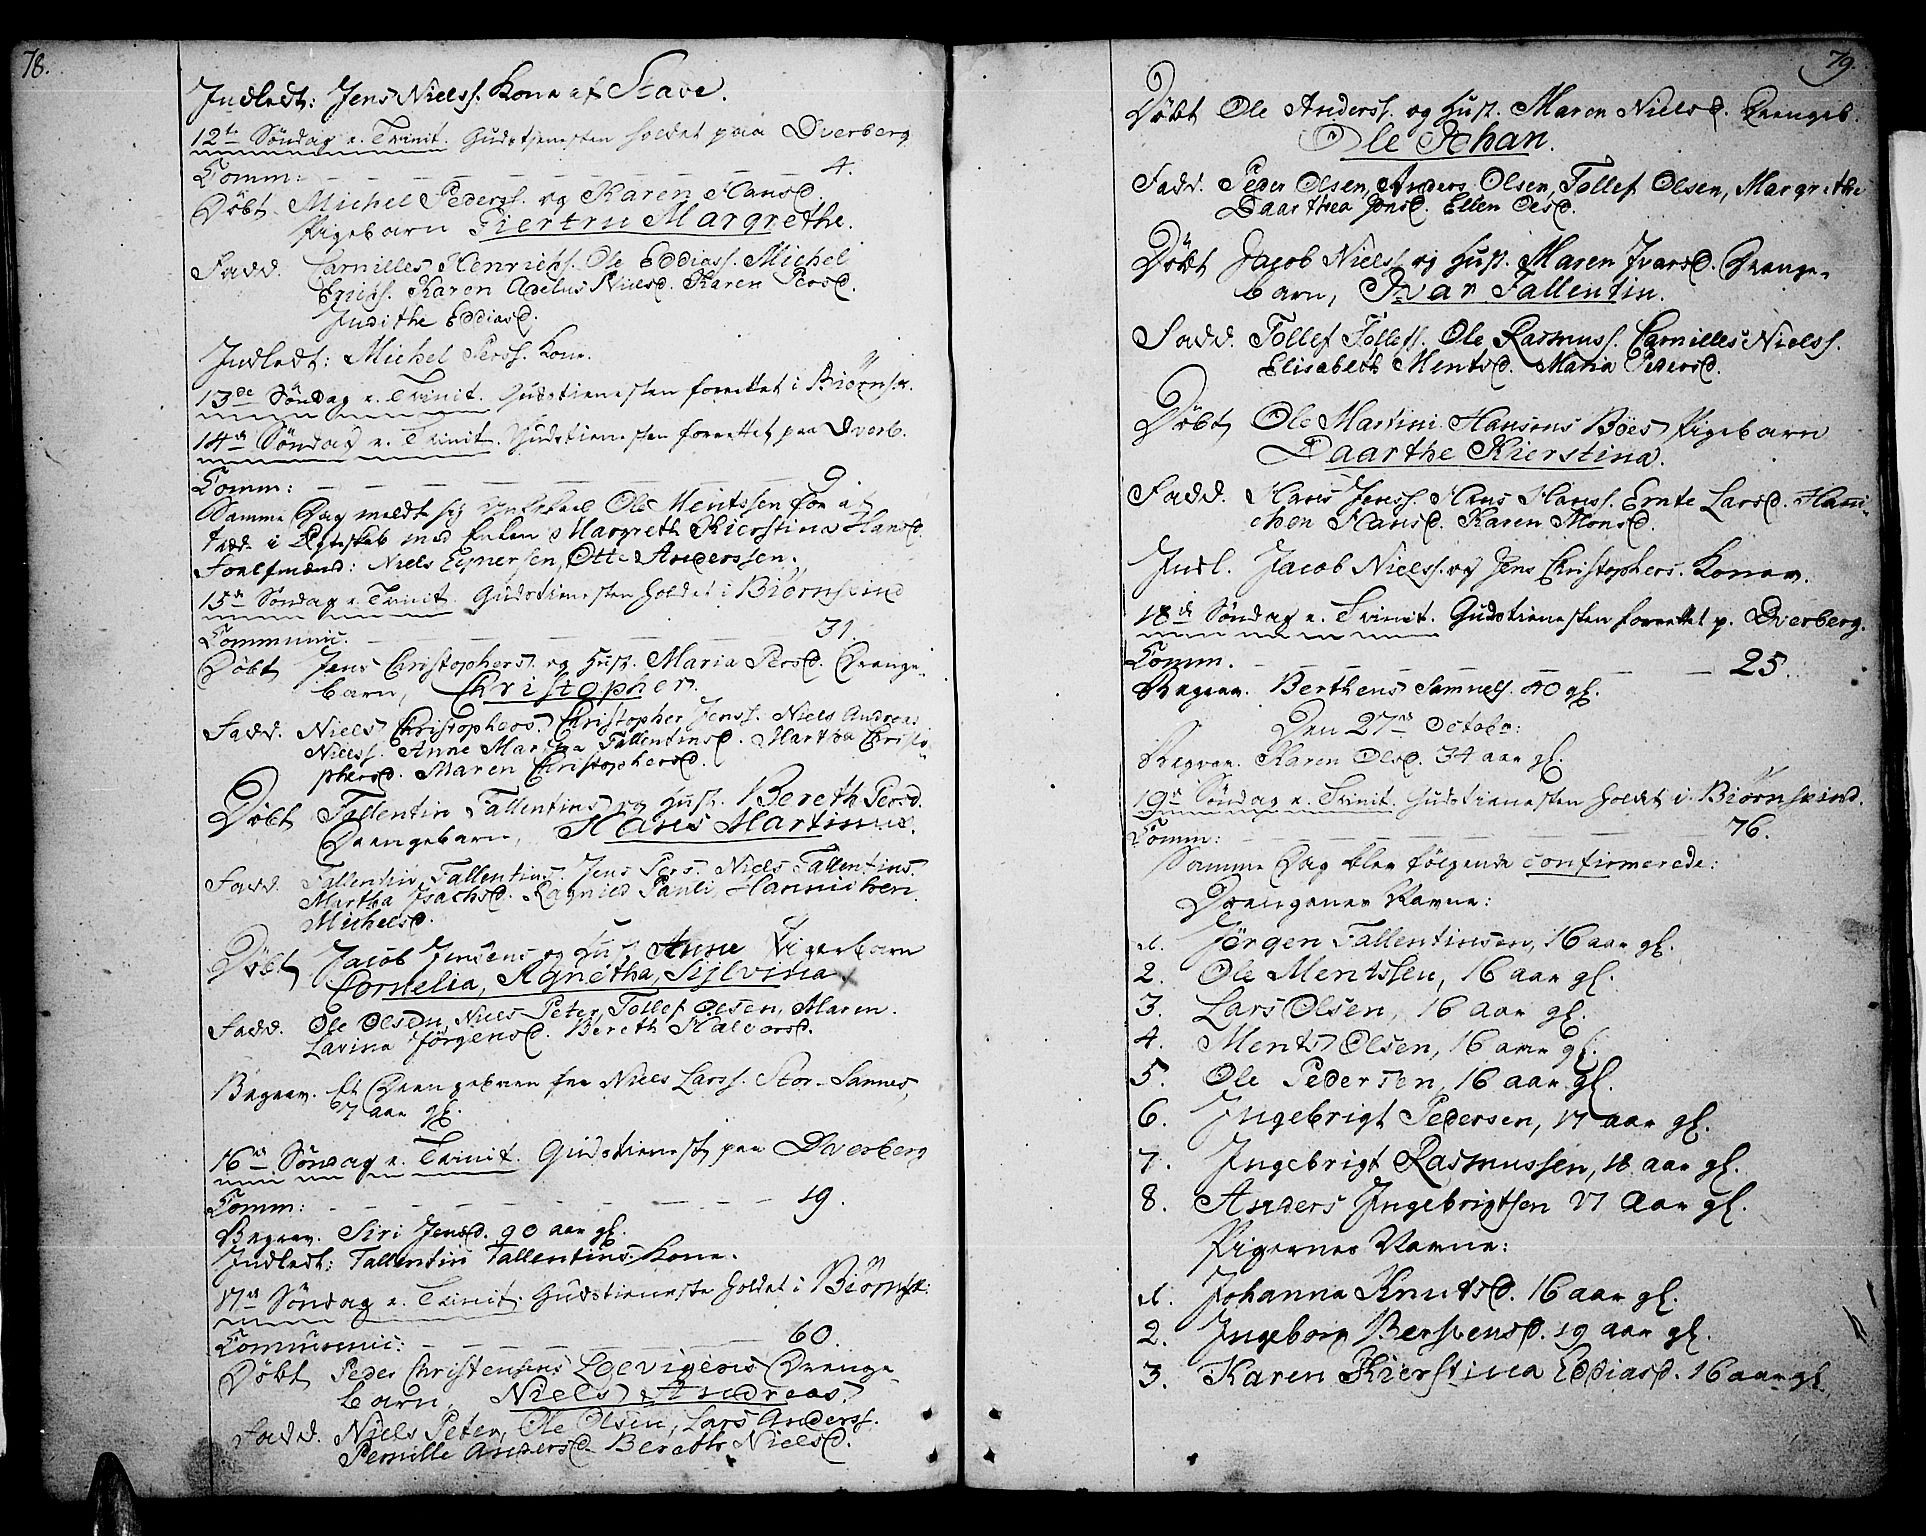 78.
Indledt: Jens Nielss. Kone af Stave.
12te Søndag e. Trinit. Gudstienesten holdet paa Dverberg
Comm: 4.
Døbt Michel Pederss. og Karen Hansd.
Pigebarn Giertru Margrethe.
Fadd. Carnilles Henrichs. Ole Eddiass. Michel
Erichss. Karen Adelus Nielsd. Karen Persd.
Judithe Eddiasd.
Indledt: Michel Perss. Kone.
13de Søndag e. Trinit. Gudstienesten forrettet i Biørnsk.
14de Søndag e. Trinit. Gudstienesten forrettet paa Dverb.
Comm: 9.
Samme Dag meldt sig Ole Mentssen for at
træde i Egteskab med Enken Margreth Kierstina Hansd.
Forlfmænd: Niels Egnersen, Otte Anderssen.
15de Søndag e. Trinit. Gudstienesten holdet i Biørnskind
Communic. 31.
Døbt Jens Christophers. og Hust. Maria Persd. Drenge-
barn, Christopher.
Fadd. Niels Christophers. Christopher Jenss. Niels Andreas
Nielss. Anne Martha Fallentinsd. Martha Christo-
phersd. Maren Christophersd.
Døbt Fallentin Fallentins. og Hust. Bereth Persd.
Drengebarn, Hans Martinus.
Fadd. Fallentin Fallentins. Jens Pers. Niels Fallentins.
Martha Isachsd. Ragnild Pauli, Hannichen
Michelsd.
Døbt Jacob Jensens og Hust. Anne Pigebarn
Cornelia, Agnetha, Sylvina x
Fadd. Ole Olsen, Niels Peter, Tollef Olsen, Maren
Lavina Jørgensd. Bereth Halvorsd.
Begrav. Et Drengebarn fra Niels Larss. Stor-Sannes,
7 aar gl.
16de Søndag e. Trinit. Gudstienest paa Dverberg
Comm: 19.
Begrav. Siri Jensd. 90 aar gl.
Indledt: Fallentin Fallentins. Kone.
17de Søndag e. Trinit. Gudstieneste holdet i Biørnsk:
Communic: 60.
Døbt Peder Christensens Loevigens Drenge-
barn, Niels Andreas
Fadd. Niels Peter, Ole Olsen, Lars Anderss.
Pernille Andersd. Bereth Nielsd.
79.
Døbt Ole Anderss. og Hust. Maren Nielsd. Drengeb.
Ole Johan.
Fadd. Peder Olsen, Anders Olsen, Tollef Olsen, Margrethe
Daarthea Jonsd. Ellen Olsd.
Døbt Jacob Nielss. og Hust. Maren Ivarsd. Drenge-
barn, Ivar Fallentin.
Fadd. Tollef Tollefs. Ole Rasmuss. Carnilles Nielss.
Elisabeth Mentsd. Maria Pedersd.
Døbt Ole Martini Hansens Böes Pigebarn
Daarthe Kierstina.
Fadd. Hans Jenss. Hans Hanss. Ernte Larsd. Hanni-
chen Hansd. Karen Monsd.
Indl. Jacob Nielss. og Jens Christophers. Koner.
18de Søndag e. Trinit. Gudstienesten forrettet p. Dverberg.
Comm. 25.
Begrav. Berthens Samuels. 80 gl.
Den 27de Octobr:
Begrav. Karen Olsd. 34 aar gl.
19de Søndag e. Trinit. Gudstienesten holdet i Biørnskind.
Comm: 76.
Samme Dag blev følgende confirmerede:
Drengenes Navne:
1. Jørgen Fallentinsen, 16 aar gl.
2. Ole Mentssen, 16 aar gl.
3. Lars Olsen, 16 aar gl.
4. Ments Olsen, 16 aar gl.
5. Ole Pedersen, 16 aar gl.
6. Ingebrigt Pedersen, 17 aar gl.
7. Ingebrigt Rasmussen, 18 aar gl.
8. Anders Ingebrigtsen 17 Aar gl.
Pigernes Navne:
1. Johanna Knutsd. 16 aar gl.
2. Ingeborg Berskensd. 19 aar gl.
3. Karen Kierstina Eddiasd. 16 aar gl.